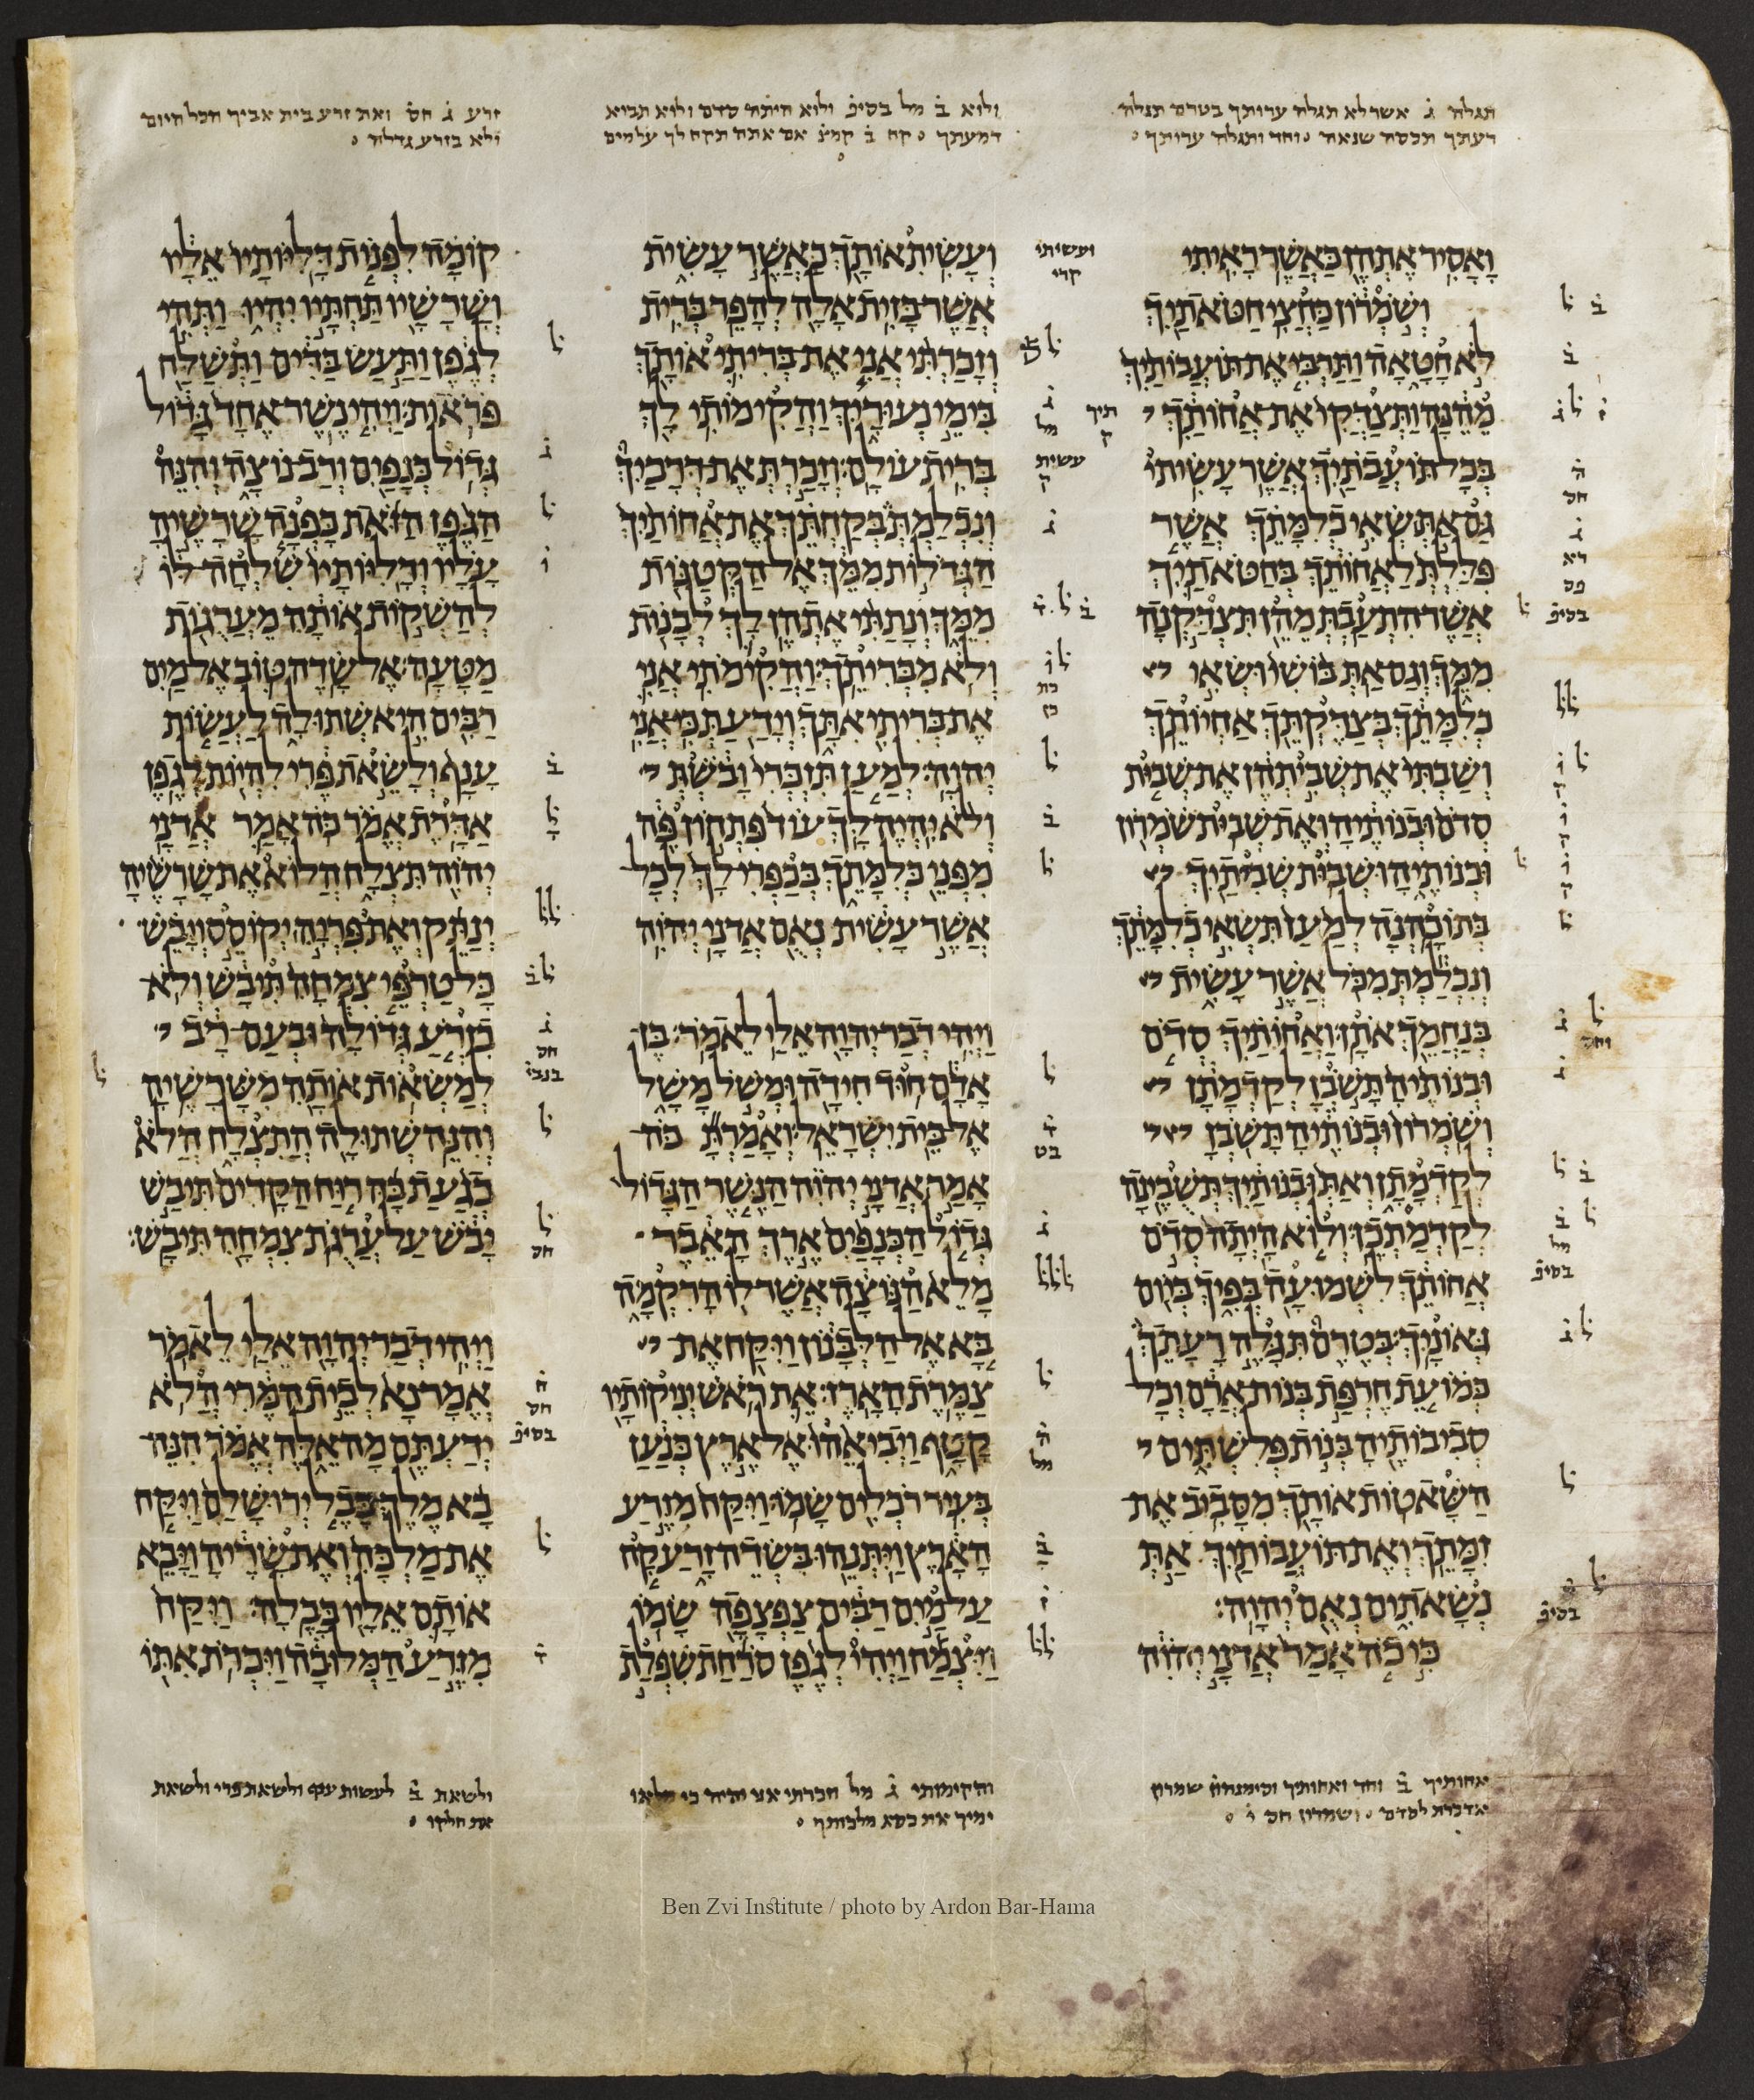 תגלה ג אשר לא תגלה ערותך בטרם תגלה
רעתך תכסה שנאה וחד ותגלה ערותך
ולוא ב מל בסיפ ולוא היתה סדם ולוא תבוא
דמעתך קח ב קמצ אם אתה תקח לך עולמים
זרע ג חס ואת זרע בית אביך הכל היום
ולא בזרע גדלה
ואסיר אתהן כאשר ראיתי
ושמרון כחצי חטאתיך
לא חטאה ותרבי את תועבותיך
מהנה ותצדקי את אחותך
בכל תועבתיך אשר עשיתי
גם את שאי כלמתך אשר
פללת לאחותך בחטאתיך
אשר התעבת מהן תצדקנה
ממך וגם את בושי ושאי
כלמתך בצדקתך אחיותך
ושבתי את שביתהן את שבית
סדם ובנותיה ואת שבית שמרון
ובנותיה ושבית שביתיך
בתוכהנה למען תשאי כלמתך
ונכלמת מכל אשר עשית
בנחמך אתן ואחותיך סדם
ובנותיה תשבן לקדמתן
ושמרון ובנותיה תשבן
לקדמתן ואת ובנותיך תשבינה
לקדמתכן ולוא היתה סדם
אחותך לשמועה בפיך ביום
גאוניך בטרם תגלה רעתך
כמו עת חרפת בנות ארם וכל
סביבותיה בנות פלשתים
השאטות אותך מסביב את
זמתך ואת תועבותיך את
נשאתים נאם יהוה׃
כי כה אמר אדני יהוה
ועשיתי
קרי
תיך
ק
עשית
ק
ועשית אותך כאשר עשית
אשר בזית אלה להפר ברית
וזכרתי אני את בריתי אותך
בימי נעוריך והקימותי לך
ברית עולם׃ וזכרת את דרכיך
ונכלמת בקחתך את אחותיך
הגדלות ממך אל הקטנות
ממך ונתתי אתהן לך לבנות
ולא מבריתך׃ והקימתי אני
את בריתי אתך וידעת כי אני
יהוה׃ למען תזכרי ובשת
ולא יהיה לך עוד פתחון פה
מפני כלמתך בכפרי לך לכל
אשר עשית נאם אדני יהוה
ויהי דבר יהוה אלי לאמר׃ בן
אדם חוד חידה ומשל משל
אל בית ישראל׃ ואמרת כה
אמר אדני יהוה הנשר הגדול
גדול הכנפים ארך האבר
מלא הנוצה אשר לו הרקמה
בא אל הלבנון ויקח את
צמרת הארז׃ את ראש יניקותיו
קטף ויביאהו אל ארץ כנען
בעיר רכלים שמו׃ ויקח מזרע
הארץ ויתנהו בשדה זרע קח
על מים רבים צפצפה שמו
ויצמח ויהי לגפן סרחת שפלת
קומה לפנות דליותיו אליו
ושרשיו תחתיו יהיו ותהי
לגפן ותעש בדים ותשלח
פראות׃ ויהי נשר אחד גדול
גדול כנפים ורב נוצה והנה
הגפן הזאת כפנה שרשיה
עליו ודליותיו שלחה לו
להשקות אותה מערגות
מטעה׃ אל שדה טוב אל מים
רבים היא שתולה לעשות
ענף ולשאת פרי להיות לגפן
אדרת אמר כה אמר אדני
יהוה תצלח הלוא את שרשיה
ינתק ואת פריה יקוסס ויבש
כל טרפי צמחה תיבש ולא
בזרע גדולה ובעם רב
למשאות אותה משרשיה
והנה שתולה התצלח הלא
כגעת בה רוח הקדים תיבש
יבש על ערגת צמחה תיבש׃
ויהי דבר יהוה אלי לאמר
אמר נא לבית המרי הלא
ידעתם מה אלה אמר הנה
בא מלך בבל ירושלם ויקח
את מלכה ואת שריה ויבא
אותם אליו בבלה׃ ויקח
מזרע המלוכה ויכרת אתו
אחותיך ב וחד ואחותיך וסימנהון שמרון
ושמרון חס
והקימותי ג מל
ימיך את כסא מלכותך
ולשאת ב לעשות ענף ולשאת פרי ולשאת
את חלקו
Ben Zvi Institute / photo by Ardon Bar-Hama